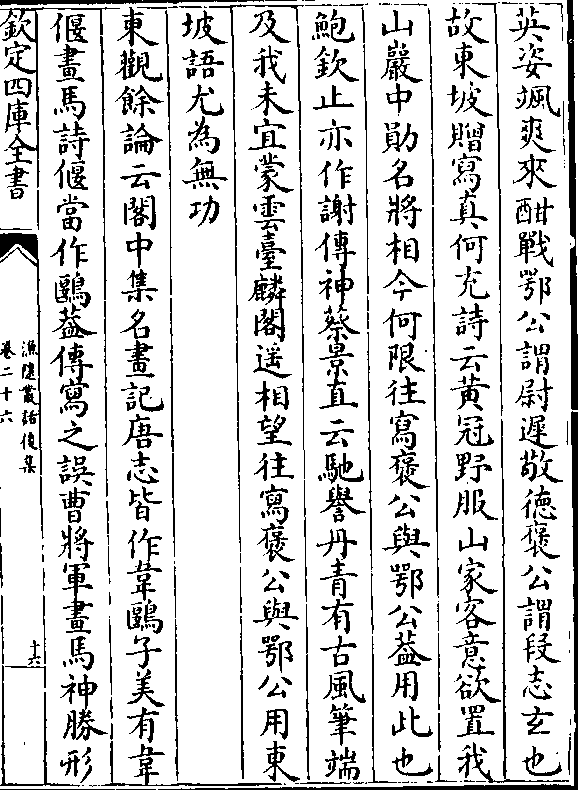 英姿颯爽來酣戰鄂公謂尉遲敬德褒公謂段志玄也
故東坡贈寫真何充詩云黄冠野服山家客意欲置我
山巖中勛名將相今何限往寫褒公與鄂公葢用此也
鮑欽止亦作謝傳神蔡景直云馳譽丹青有古風筆端
及我未宜蒙雲臺麟閣遥相望往寫褒公與鄂公用東
坡語尤為無功
東觀餘論云閣中集名畫記唐志皆作韋鷗子美有韋
偃畫馬詩偃當作鷗葢傳寫之誤曹將軍畫馬神勝形
欽定四庫全書
漁隱叢話後集
卷二十六
十六